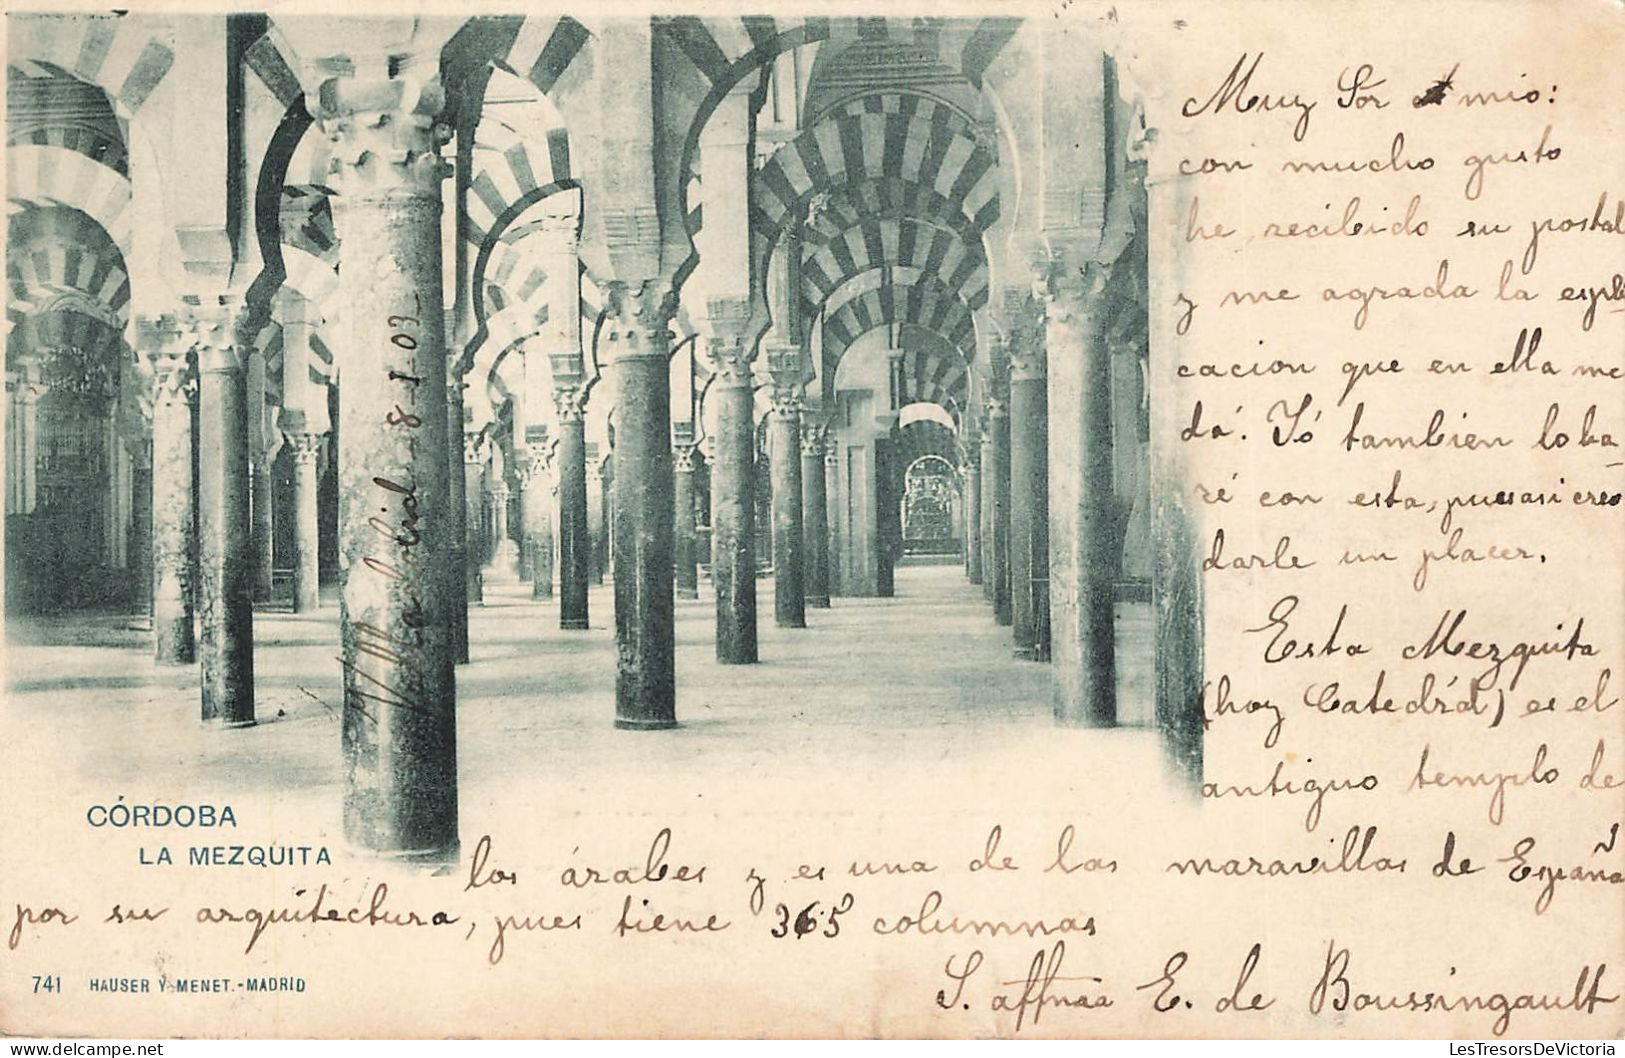 Muy Sor mio:
con mucho gusto
he recibido su postal
y me agrada la expli
cacion que en ella me
dá. Yó tambien lo ha-
ré con esta, pues asi creo
darle un placer.
Esta Mezquita
(hoy Catedrál) es el
antiguo templo de
los árabes y es una de las maravillas de España
por su arquitectura, pues tiene 365 columnas
S. affma E. de Boussingault
Valladolid - 8-1-03
CÓRDOBA
LA MEZQUITA
741 HAUSER Y MENET.-MADRID
LesTresorsDeVictoria